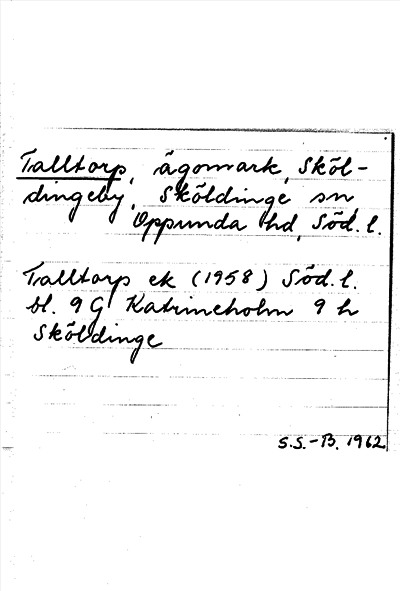 Talltorp, ägomark, Sköl-
dingeby, Sköldinge sn
Oppunda hd, Söd. l.
Talltorp ek (1958) Söd. l.
bl. 9 G Katrineholm 9 h
Sköldinge
S.S.-B. 1962